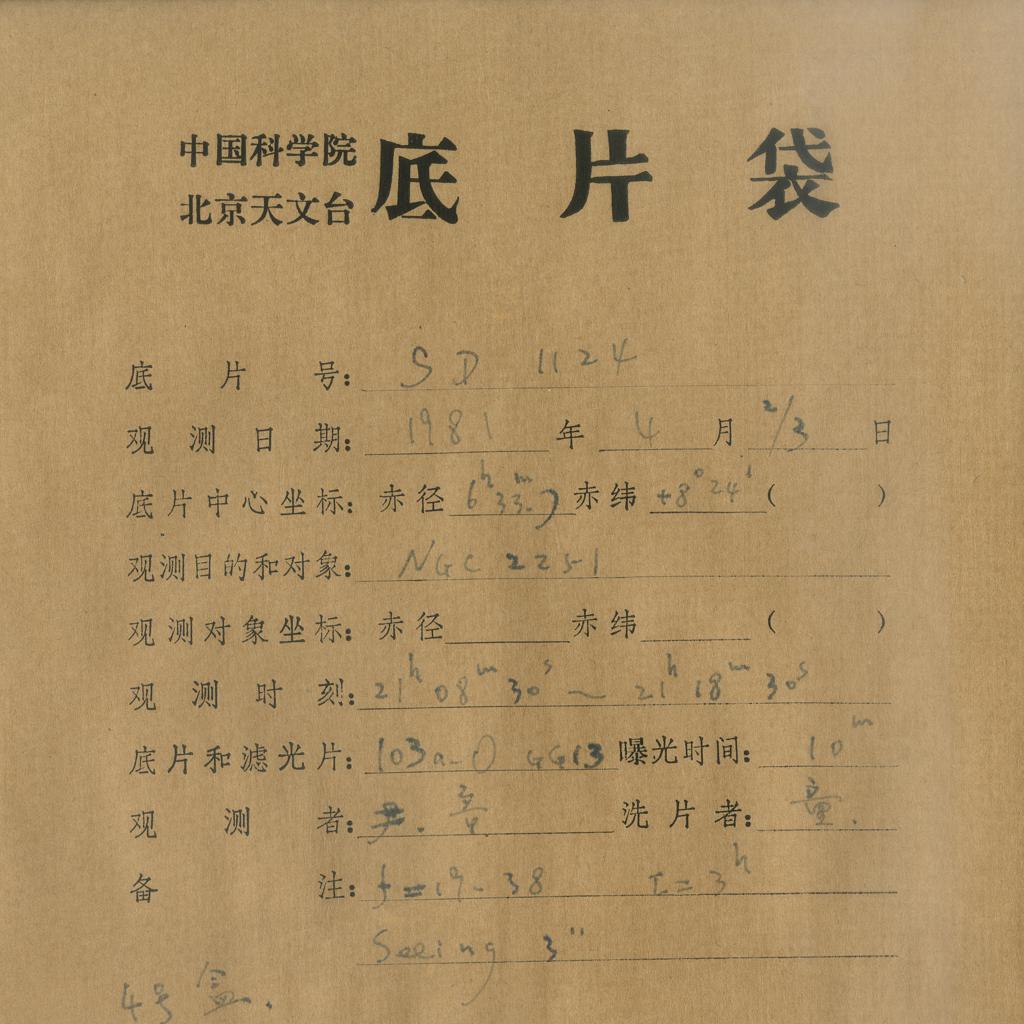 中国科学院
北京天文台
底片袋
底片号: SD 1124
观测日期: 1981 年 4 月 2/3 日
底片中心坐标: 赤径 6h 33m.7 赤纬 +8° 24' ( )
观测目的和对象: NGC 2251
观测对象坐标: 赤径 赤纬 ( )
观测时刻: 21h 08m 30s ~ 21h 18m 30s
底片和滤光片: 103a-O GG13 曝光时间: 10m
观测者: 洗片者: 童.
备注: f=19-38 t=3h
Seeing 3"
4号盒.